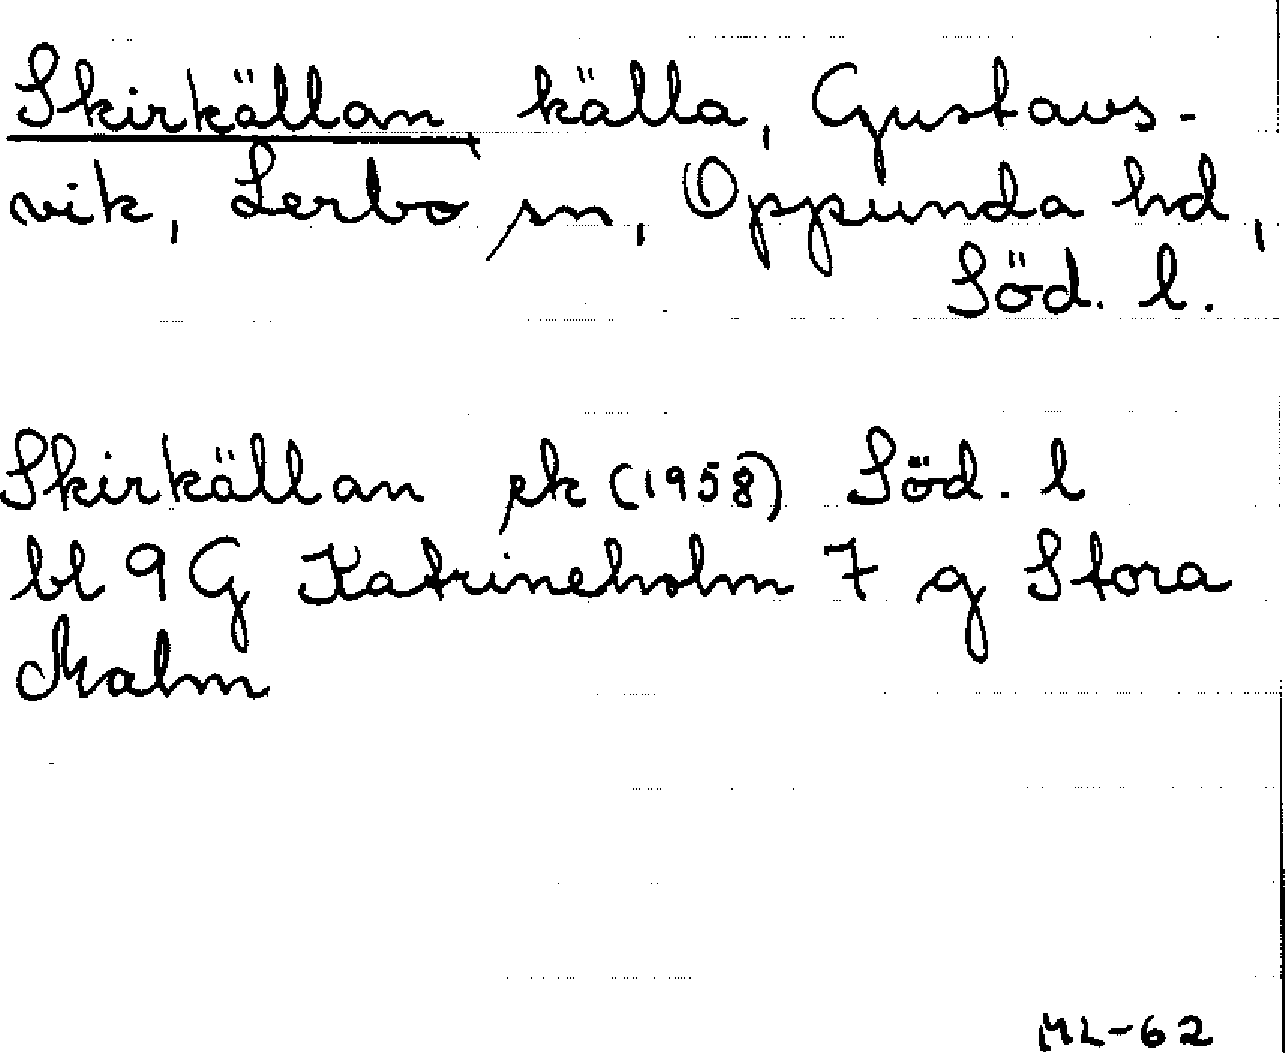 Skirkällan källa, Gustavs-
vik, Lerbo sn, Oppunda hd,
Söd. l.
Skirkällan ek (1958) Söd. l
bl 9 G Katrineholm 7 g Stora
Malm
ML-62